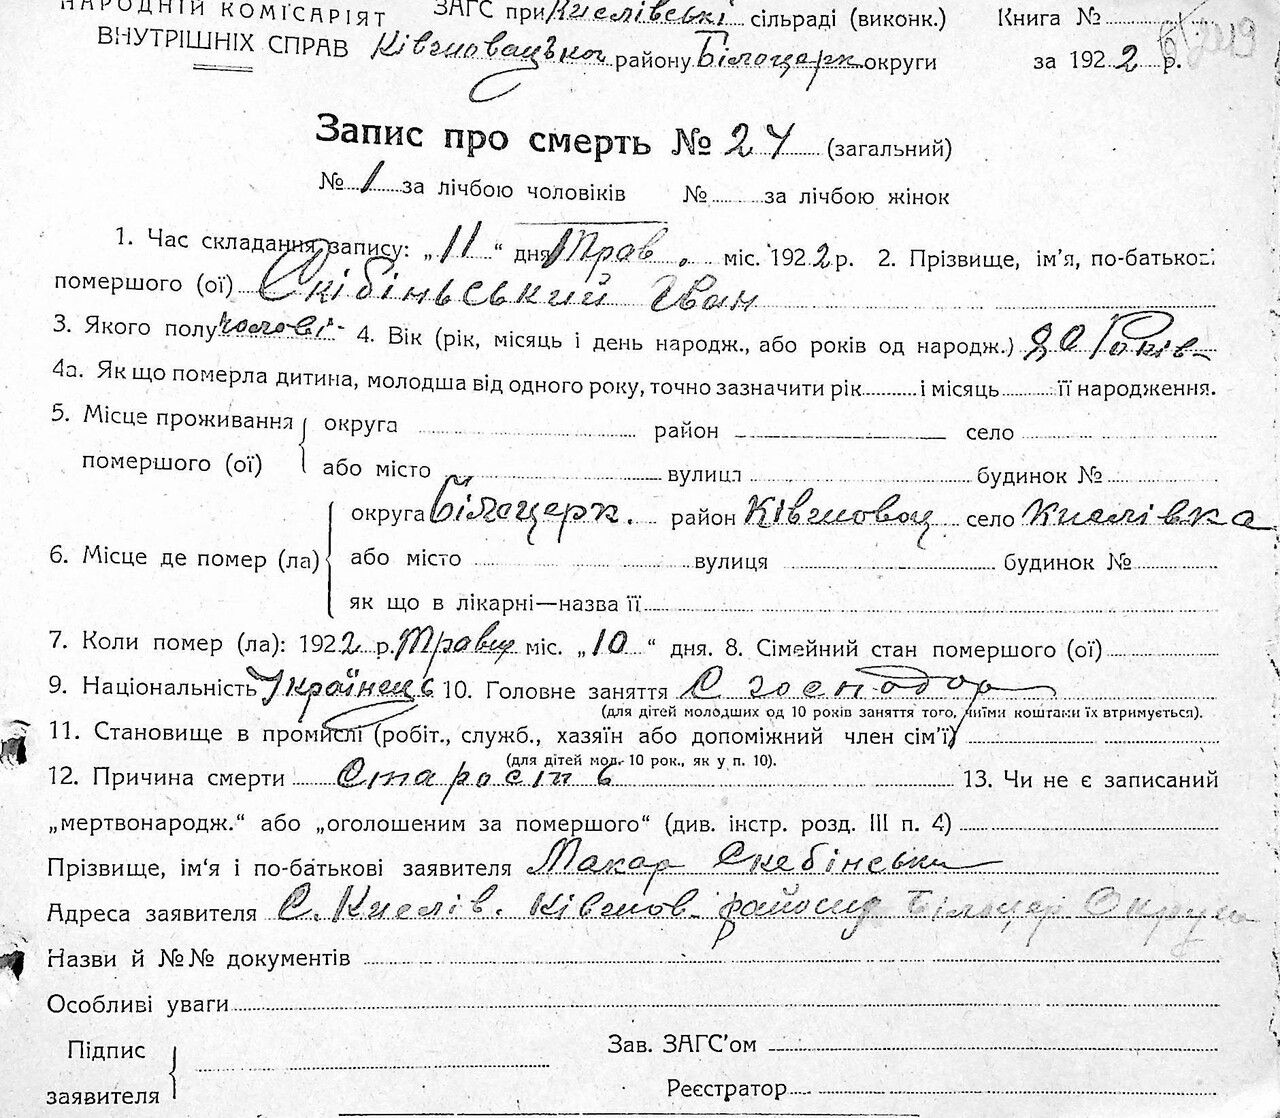 НАРОДНІЙ КОМІСАРІЯТ ЗАГС при Кислівські сільраді (виконк.) Книга №
ВНУТРІШНІХ СПРАВ району Білоцерк. округи за 1922 р.
Запис про смерть № 24 (загальний)
№ 1 за лічбою чоловіків № за лічбою жінок
1. Час складання запису: „11“ дня Трав. міс. 1922 р. 2. Прізвище, ім’я, по-батькові
помершого (ої) Скібіньський Іван
3. Якого полу чолові- 4. Вік (рік, місяць і день народж., або років од народж.) Років
4а. Як що померла дитина, молодша від одного року, точно зазначити рік і місяць її народження.
5. Місце проживання округа район село
помершого (ої) або місто вулиця будинок №
округа Білоцерк. район Ківшовац село Кислівка
6. Місце де помер (ла) або місто вулиця будинок №
як що в лікарні—назва її
7. Коли помер (ла): 1922 р. Травц міс. „10“ дня. 8. Сімейний стан помершого (ої)
9. Національність Українець 10. Головне заняття С господар
(для дітей молодших од 10 років заняття того, чиїми коштами їх втримується).
11. Становище в промислі (робіт., служб., хазяїн або допоміжний член сім’ї)
(для дітей мол. 10 рок., як у п. 10).
12. Причина смерти Старость 13. Чи не є записаний
„мертвонародж.“ або „оголошеним за помершого“ (див. інстр. розд. III п. 4)
Прізвище, ім‘я і по-батькові заявителя Макар Скебінськи
Адреса заявителя С. Кислів. Ківшов. Білоцер Округи
Назви й №№ документів
Особливі уваги
Підпис Зав. ЗАГС’ом
заявителя Реєстратор